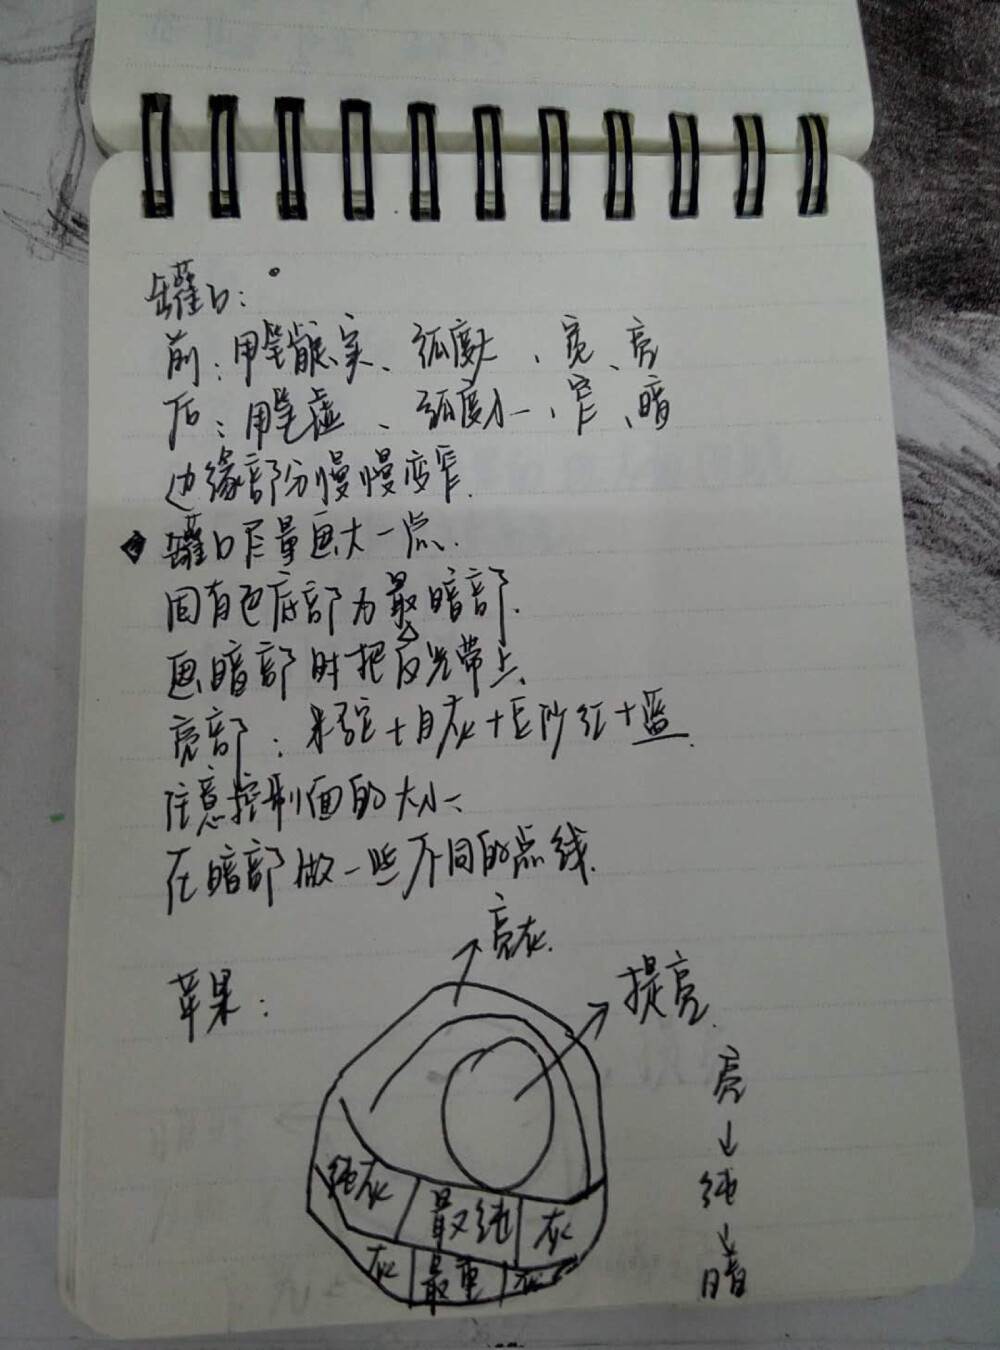 罐口：
前：用笔肯定、实、弧度大、宽、亮
后：用笔虚、弧度小、窄、暗
边缘部分慢慢变窄.
◆ 罐口尽量画大一点.
固有色底部为最暗部.
画暗部时把反光带上.
亮部： + 月灰 + 红 + 蓝.
注意控制面的大小、
在暗部做一些不同的点线.
亮灰.
苹果：
提亮.
亮
↓
纯
↓
暗
纯灰 最纯 灰
灰 最重 灰